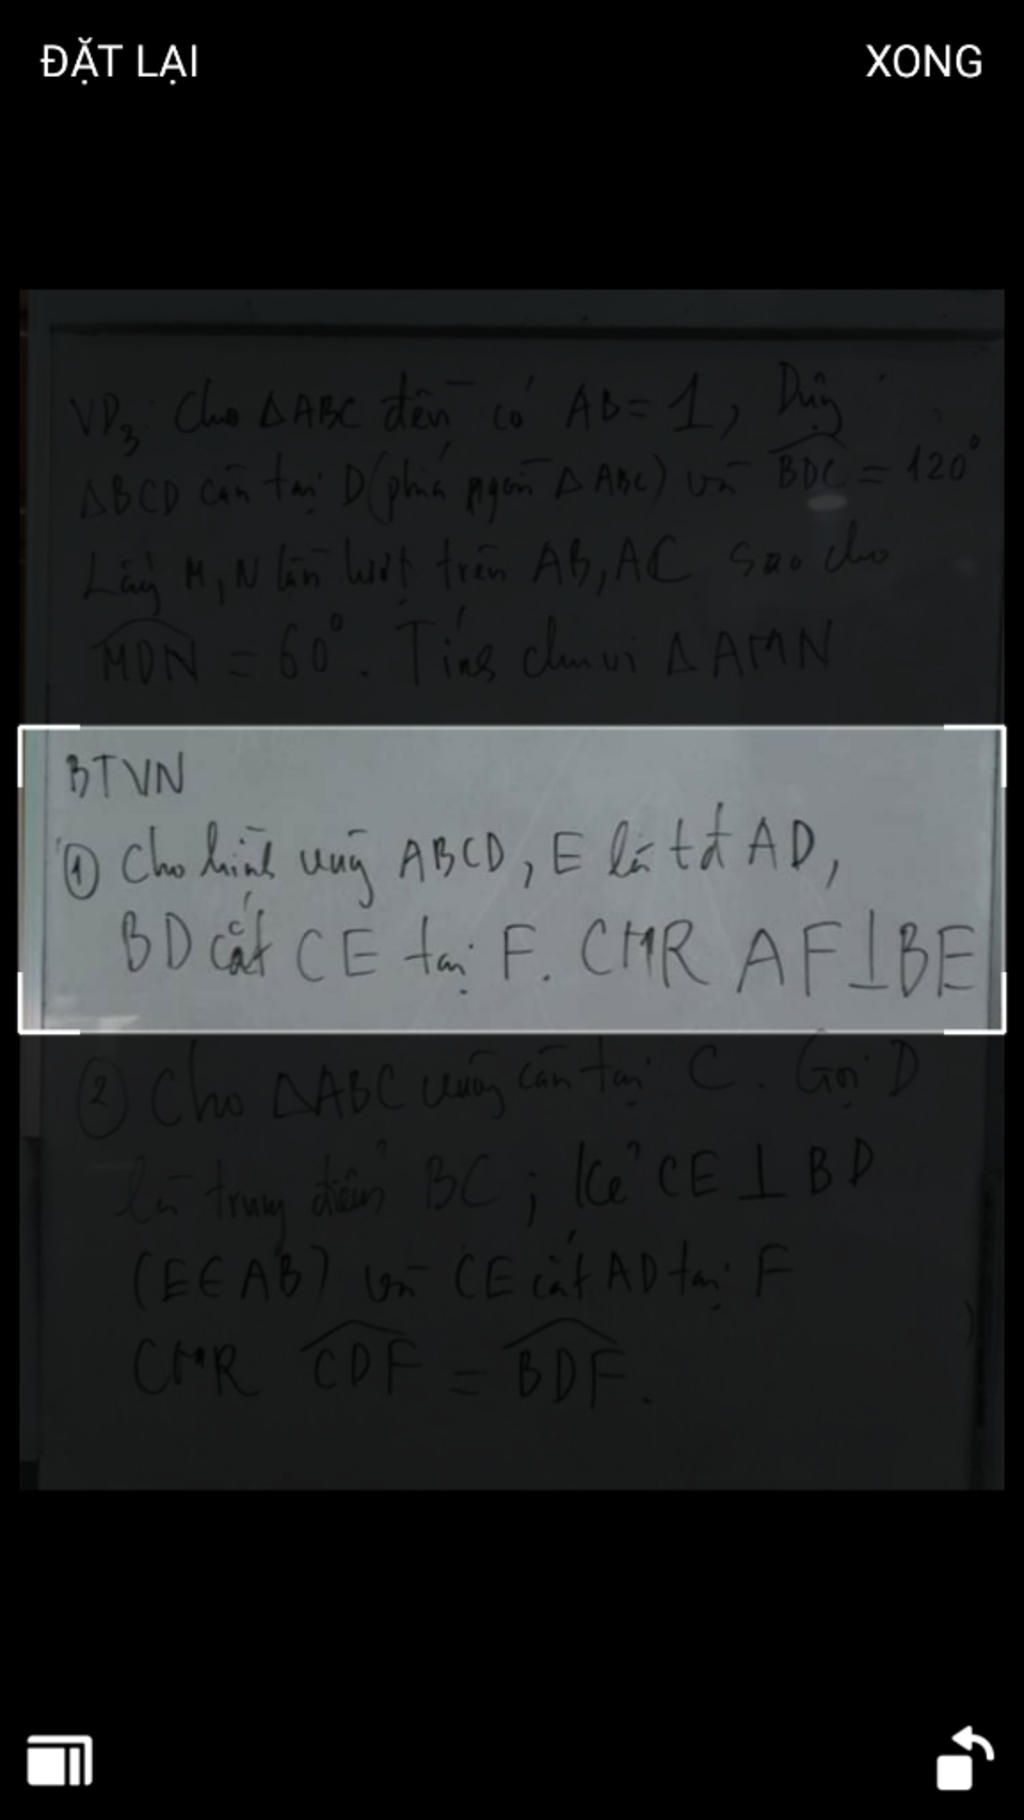 ĐẶT LẠI
XONG
VD3: Cho ΔABC đều có AB = 1, Dựng
ΔBCD cân tại D (phía ngoài ΔABC) và BDC = 120°
Lấy M, N lần lượt trên AB, AC sao cho
MDN = 60°. Tính chu vi ΔAMN
BTVN
① Cho hình vuông ABCD, E là tđ AD,
BD cắt CE tại F. CMR AF⊥BE
② Cho ΔABC vuông cân tại C. Gọi D
là trung điểm BC; Kẻ CE ⊥ BD
(E∈AB) và CE cắt AD tại F
CMR CDF = BDF.